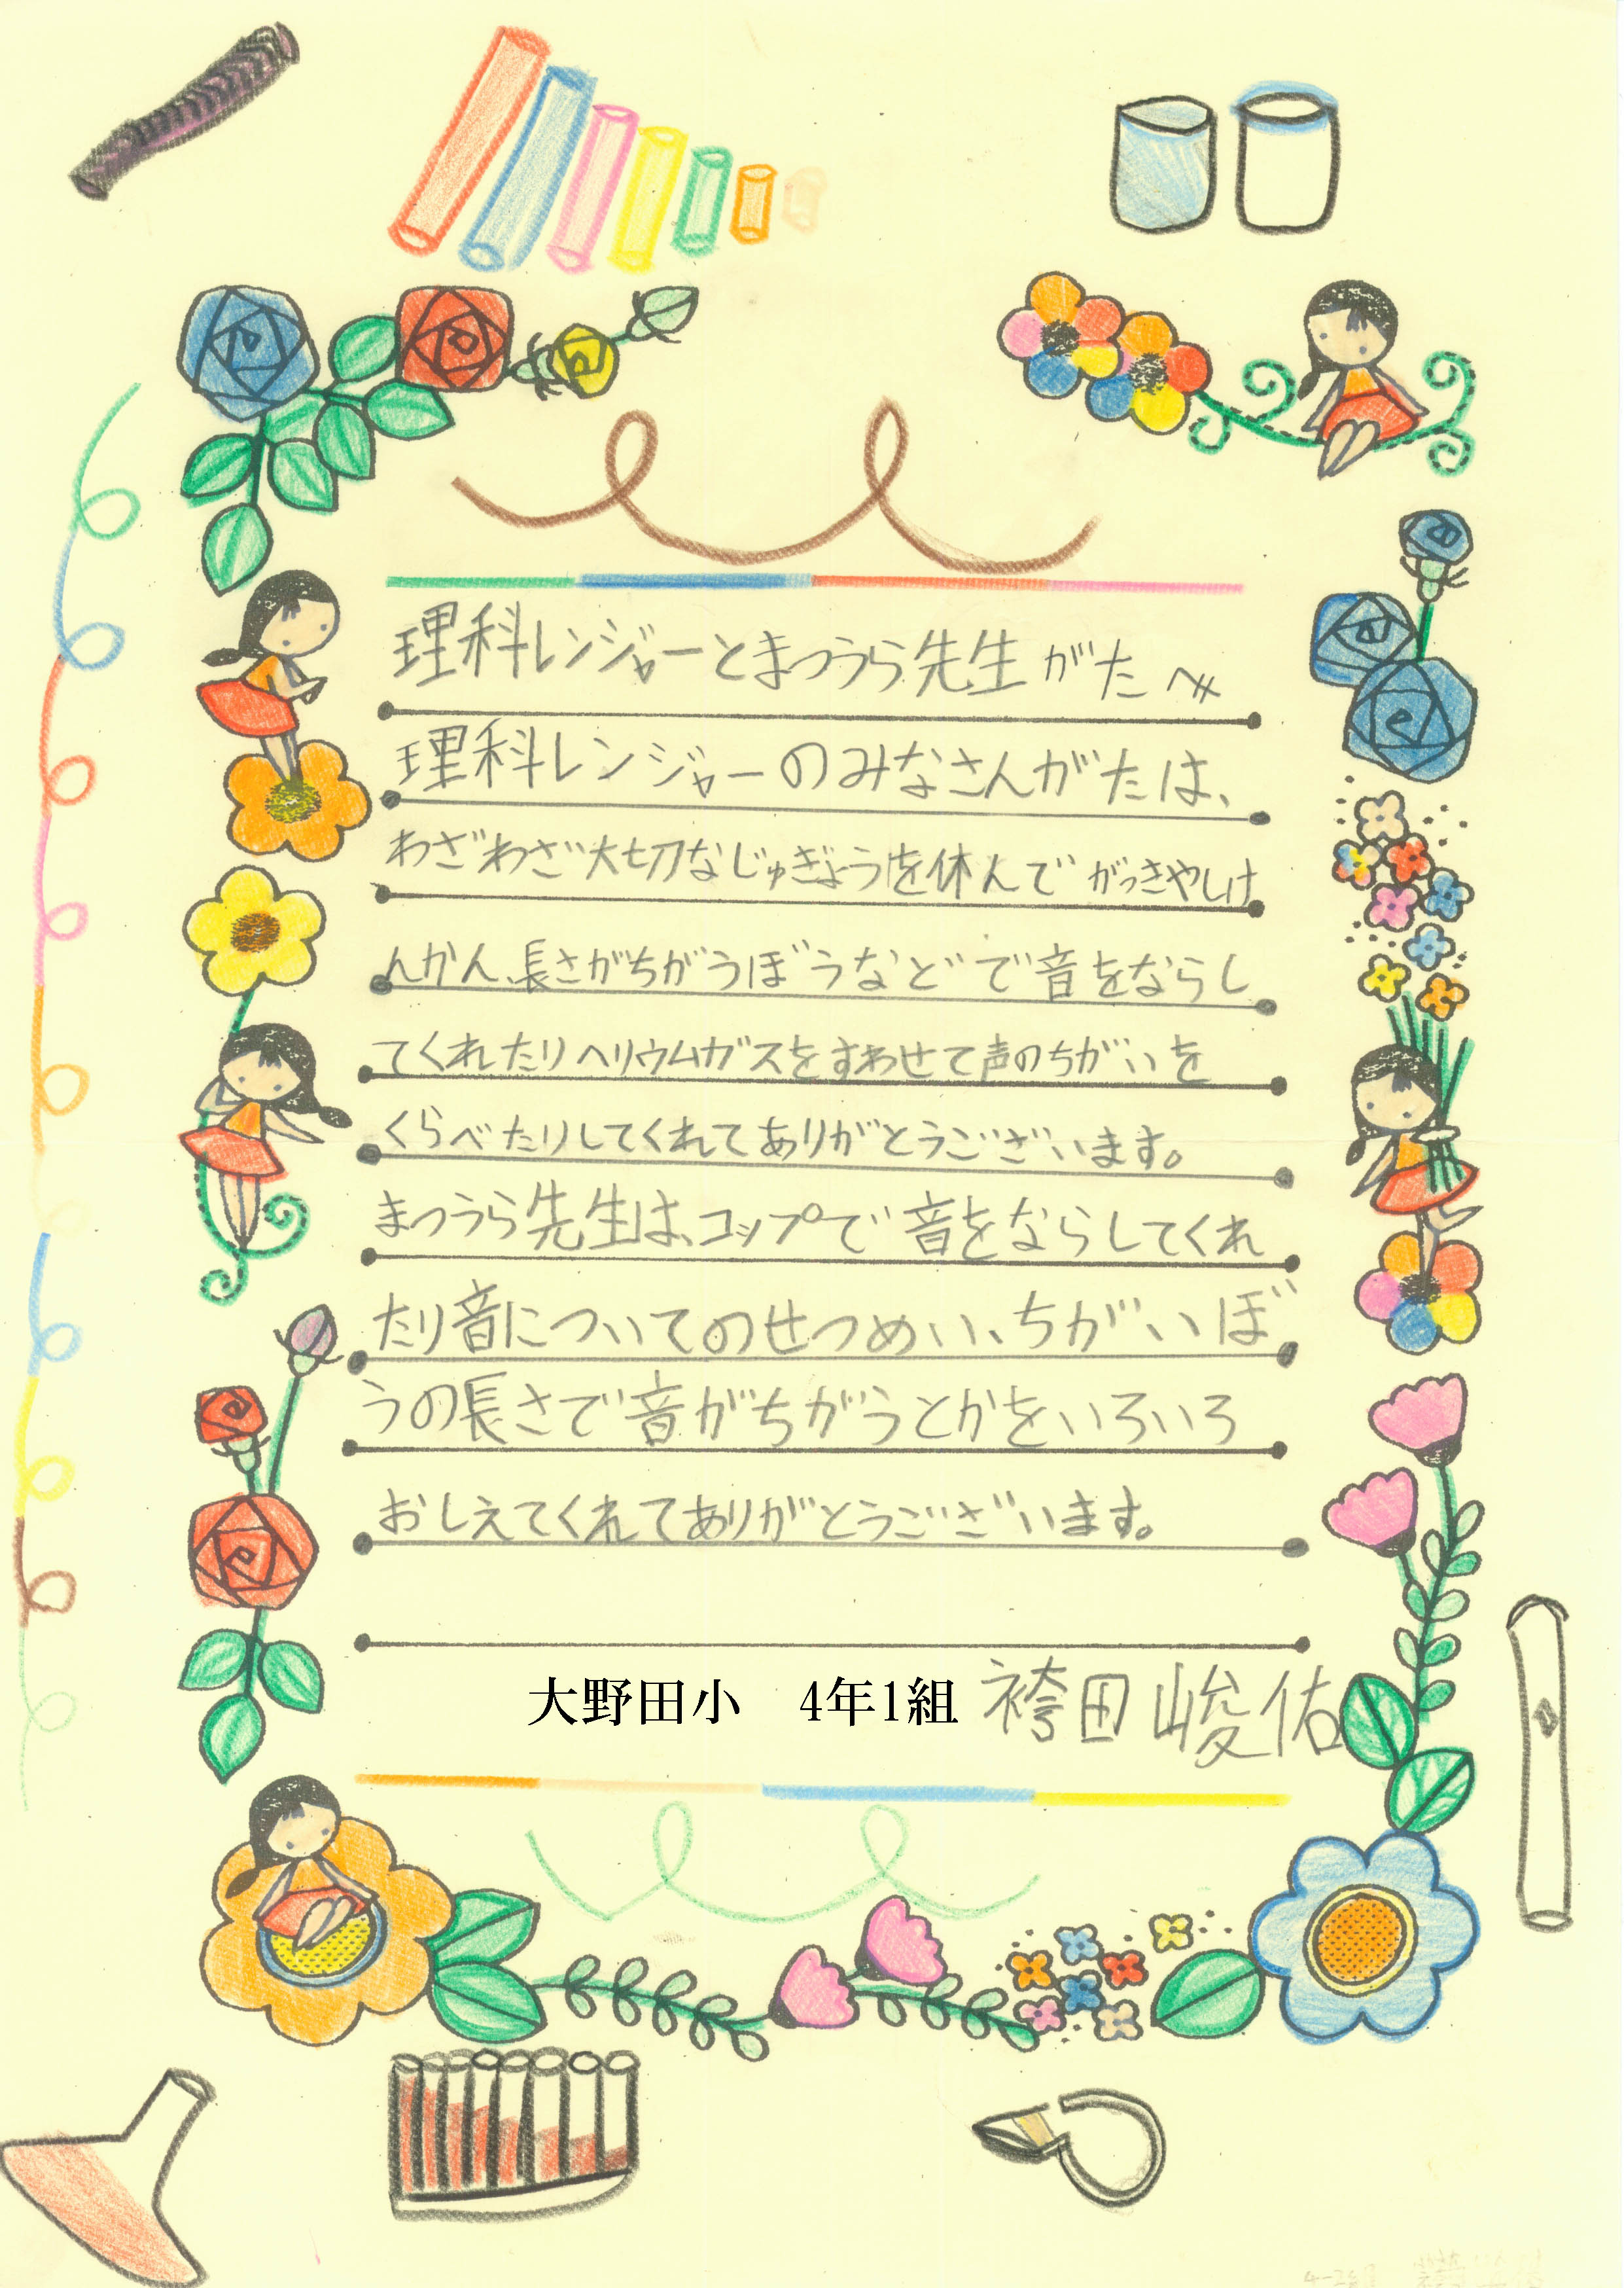 理科レンジャーとまつうら先生がたへ
理科レンジャーのみなさんがたは、
わざわざ大切なじゅぎょうを休んでがっきやしけ
んかん、長さがちがうぼうなどで音をならし
てくれたりヘリウムガスをすわせて声のちがいを
くらべたりしてくれてありがとうございます。
まつうら先生は、コップで音をならしてくれ
たり音についてのせつめい、ちがいぼ
うの長さで音がちがうとかをいろいろ
おしえてくれてありがとうございます。
大野田小 4年1組 袴田峻佑